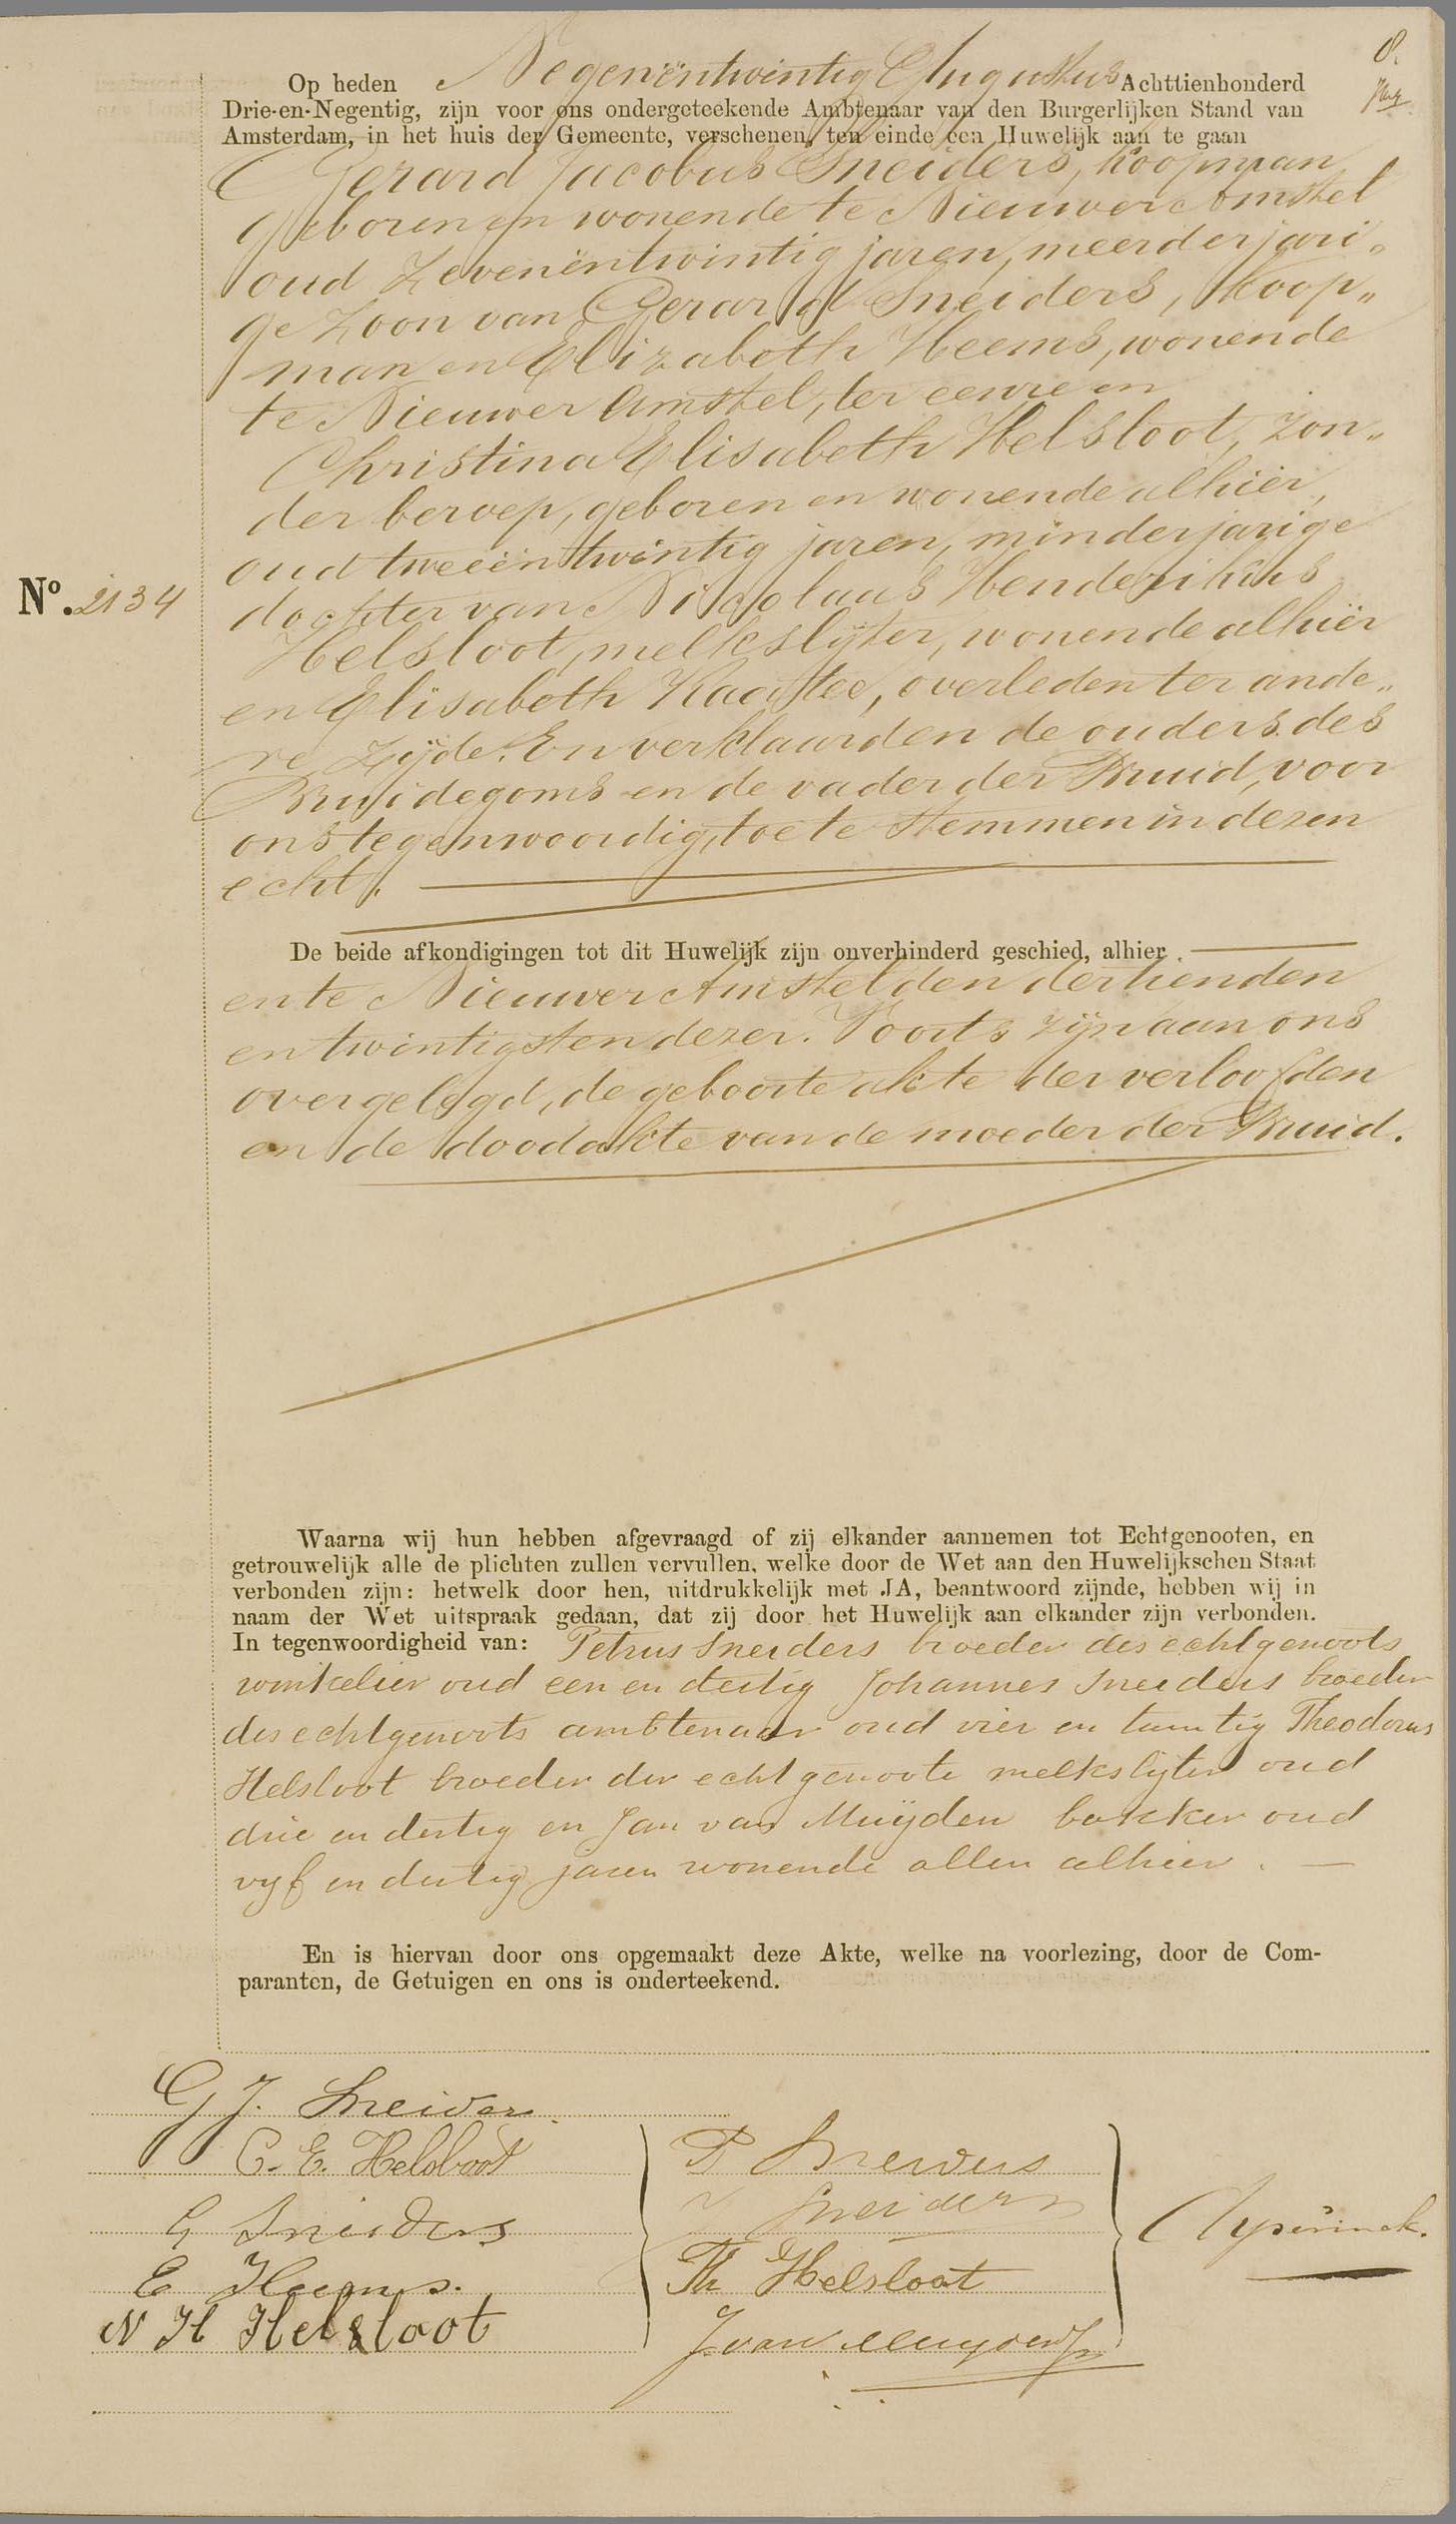 8.
Op heden Negenëntwintig Augustus Achttienhonderd
Drie-en-Negentig, zijn voor ons ondergeteekende Ambtenaar van den Burgerlijken Stand van
Amsterdam, in het huis der Gemeente, verschenen, ten einde een Huwelijk aan te gaan
Gerard Jacobus Sneiders, koopman
geboren en wonende te Nieuwer Amstel
oud Zevenëntwintig jaren, meerderjari„
ge Zoon van Gerard Sneiders, koop„
man en Elizabeth Heems, wonende
te Nieuwer Amstel, ter eenre en
Christina Elisabeth Helsloot, zon„
der beroep, geboren en wonende alhier,
oud tweeëntwintig jaren, minderjarige
No. 2134
dochter van Nicolaus Henderikus
Helsloot, melkslijter, wonende alhier
en Elisabeth Kaastee, overleden ter ande„
re zijde. En verklaarden de ouders des
Bruidegoms en de vader der Bruid, voor
ons tegenwoordig, toe te stemmen in dezen
echt.
De beide afkondigingen tot dit Huwelijk zijn onverhinderd geschied, alhier
en te Nieuwer Amstel den dertienden
en twintigsten dezer. Voorts zijn aan ons
overgelegd, de geboorte akte der verloofden
en de doodakte van de moeder der Bruid.
Waarna wij hun hebben afgevraagd of zij elkander aannemen tot Echtgenooten, en
getrouwelijk alle de plichten zullen vervullen, welke door de Wet aan den Huwelijkschen Staat
verbonden zijn: hetwelk door hen, uitdrukkelijk met JA, beantwoord zijnde, hebben wij in
naam der Wet uitspraak gedaan, dat zij door het Huwelijk aan elkander zijn verbonden.
In tegenwoordigheid van: Petrus Sneiders broeder des echtgenoots
winkelier oud een en dertig Johannes Sneiders broeder
des echtgenoots ambtenaar oud vier en twintig Theodorus
Helsloot broeder der echtgenoote melkslijter oud
drie en dertig en Jan van Muijden bakker oud
vijf en dertig jaren wonende allen alhier.
En is hiervan door ons opgemaakt deze Akte, welke na voorlezing, door de Com-
paranten, de Getuigen en ons is onderteekend.
G J. Sneiders
C. E. Helsloot
G Sneiders
E Heems.
N H Helsloot
P Sneiders
J Sneiders
Th Helsloot
J van Muyden Jz